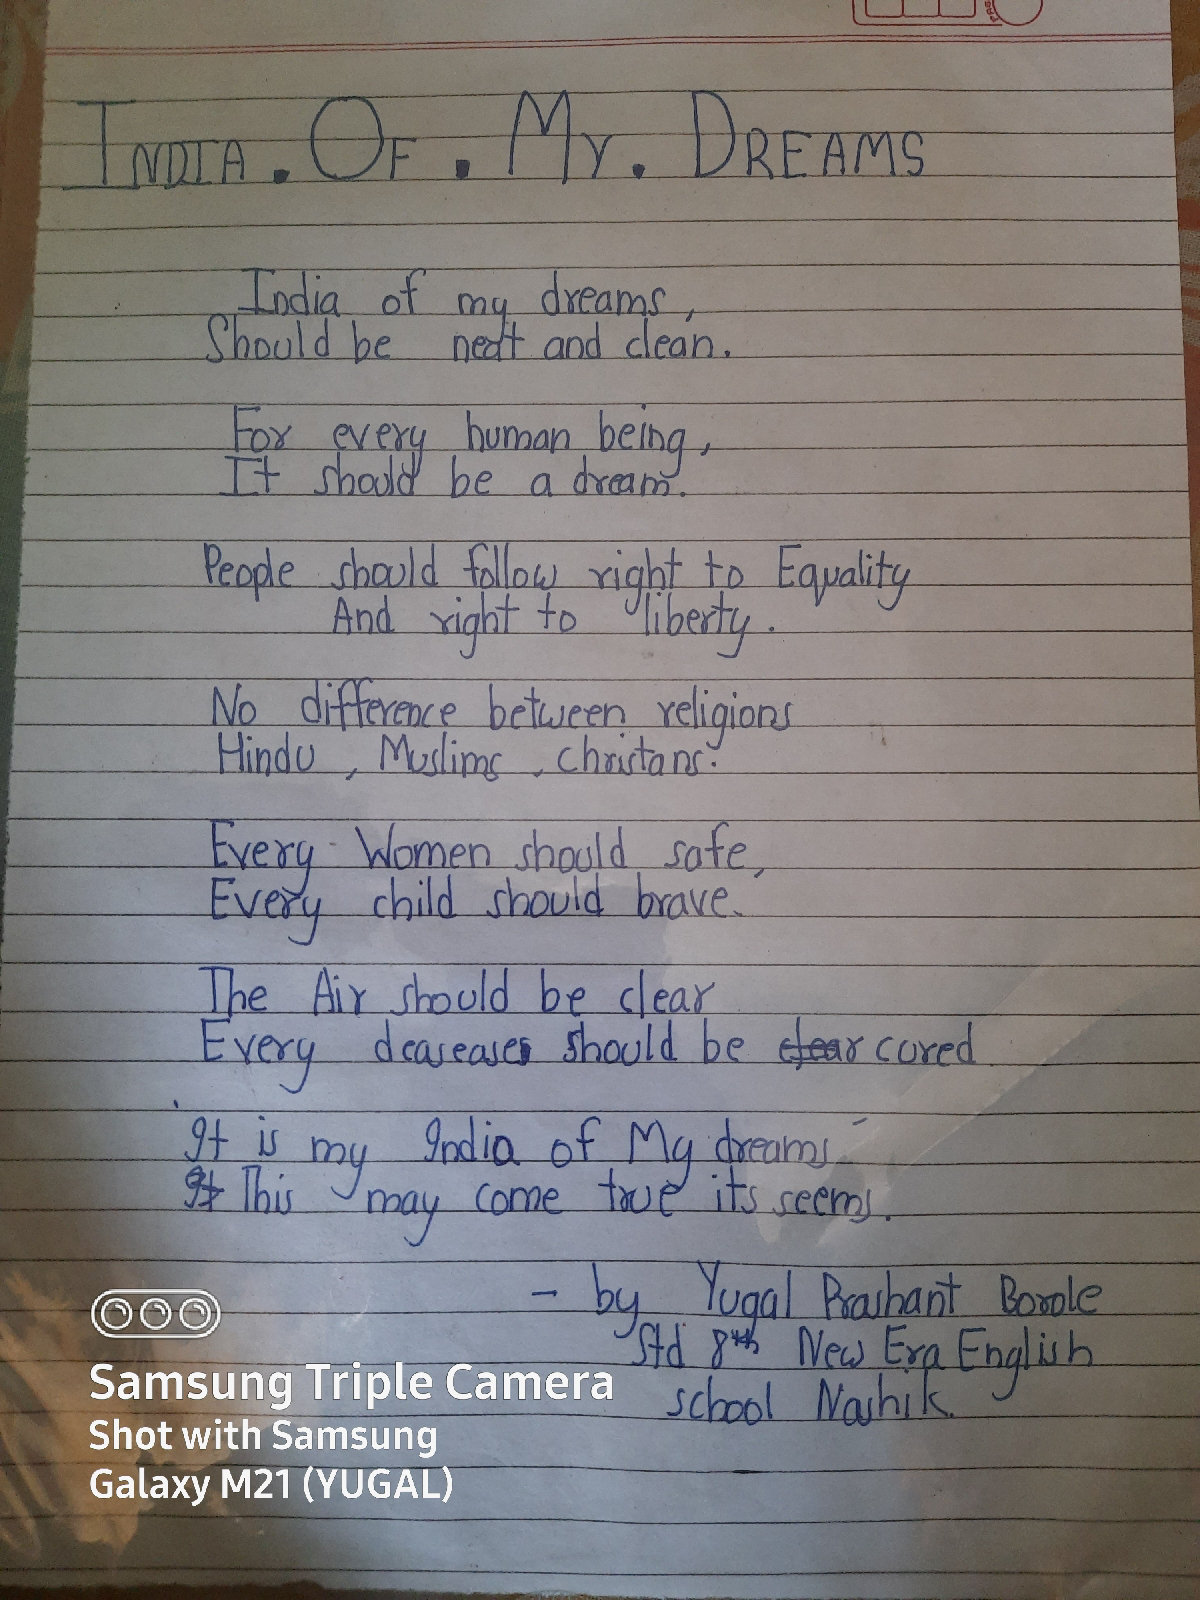 INDIA. OF. MY. DREAMS
India of my dreams,
Should be neat and clean.
For every human being,
It should be a dream.
People should follow right to Equality
And right to liberty.
No difference between religions
Hindu, Muslims, Christans.
Every Women should safe,
Every child should brave.
The Air should be clear
Every deaseases should be clear cured
It is my India of My dreams
It This may come true its seems.
- by Yugal Prashant Borole
Std 8th New Era English
school Nashik.
Samsung Triple Camera
Shot with Samsung
Galaxy M21 (YUGAL)